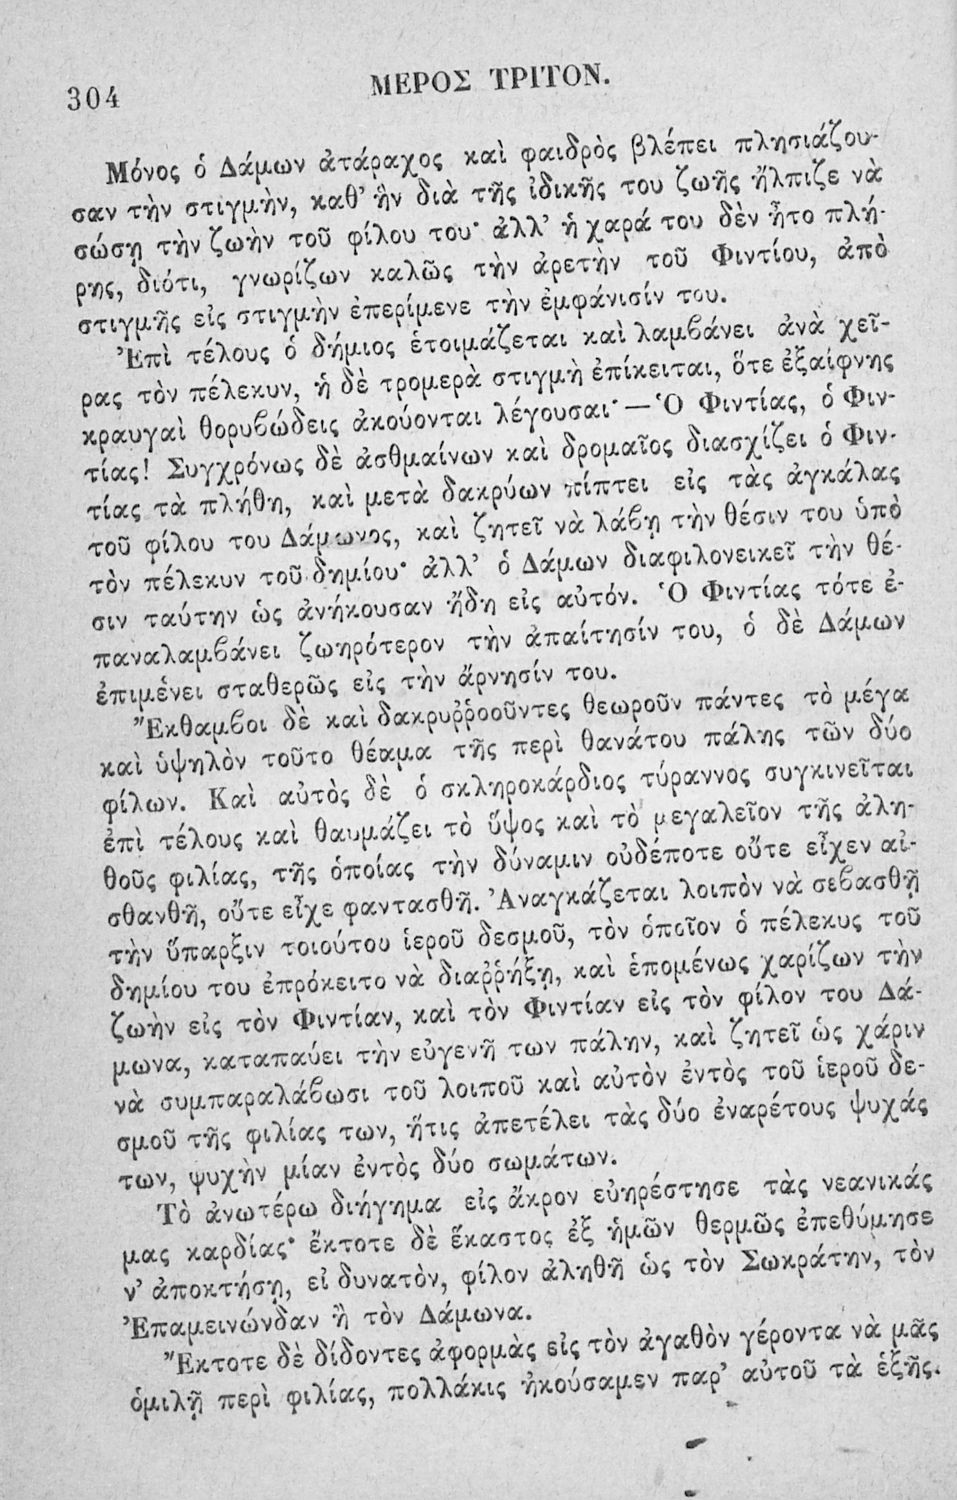 304
ΜΕΡΟΣ ΤΡΙΤΟΝ.
Μόνος ὁ Δάμων ἀτάραχος καὶ φαιδρὸς βλέπει πλησιάζου-
σαν τὴν στιγμὴν, καθ’ ἣν διὰ τῆς ἰδικῆς του ζωῆς ἤλπιζε νὰ
σώσῃ τὴν ζωὴν τοῦ φίλου του· ἀλλ’ ἡ χαρά του δὲν ἦτο πλή-
ρης, διότι, γνωρίζων καλῶς τὴν ἀρετὴν τοῦ Φιντίου, ἀπὸ
στιγμῆς εἰς στιγμὴν ἐπερίμενε τὴν ἐμφάνισίν του.
Ἐπὶ τέλους ὁ δήμιος ἑτοιμάζεται καὶ λαμβάνει ἀνὰ χεῖ-
ρας τὸν πέλεκυν, ἡ δὲ τρομερὰ στιγμὴ ἐπίκειται, ὅτε ἐξαίφνης
κραυγαὶ θορυβώδεις ἀκούονται λέγουσαι· — Ὁ Φιντίας, ὁ Φιν-
τίας! Συγχρόνως δὲ ἀσθμαίνων καὶ δρομαῖος διασχίζει ὁ Φιν-
τίας τὰ πλήθη, καὶ μετὰ δακρύων πίπτει εἰς τὰς ἀγκάλας
τοῦ φίλου του Δάμωνος, καὶ ζητεῖ νὰ λάβῃ τὴν θέσιν του ὑπὸ
τὸν πέλεκυν τοῦ δημίου· ἀλλ’ ὁ Δάμων διαφιλονεικεῖ τὴν θέ-
σιν ταύτην ὡς ἀνήκουσαν ἤδη εἰς αὐτόν. Ὁ Φιντίας τότε ἐ-
παναλαμβάνει ζωηρότερον τὴν ἀπαίτησίν του, ὁ δὲ Δάμων
ἐπιμένει σταθερῶς εἰς τὴν ἄρνησίν του.
Ἔκθαμβοι δὲ καὶ δακρυῤῥοοῦντες θεωροῦν πάντες τὸ μέγα
καὶ ὑψηλὸν τοῦτο θέαμα τῆς περὶ θανάτου πάλης τῶν δύο
φίλων. Καὶ αὐτὸς δὲ ὁ σκληροκάρδιος τύραννος συγκινεῖται
ἐπὶ τέλους καὶ θαυμάζει τὸ ὕψος καὶ τὸ μεγαλεῖον τῆς ἀλη-
θοῦς φιλίας, τῆς ὁποίας τὴν δύναμιν οὐδέποτε οὔτε εἶχεν αἰ-
σθανθῆ, οὔτε εἶχε φαντασθῆ. Ἀναγκάζεται λοιπὸν νὰ σεβασθῇ
τὴν ὕπαρξιν τοιούτου ἱεροῦ δεσμοῦ, τὸν ὁποῖον ὁ πέλεκυς τοῦ
δημίου του ἐπρόκειτο νὰ διαῤῥήξῃ, καὶ ἑπομένως χαρίζων τὴν
ζωὴν εἰς τὸν Φιντίαν, καὶ τὸν Φιντίαν εἰς τὸν φίλον του Δά-
μωνα, καταπαύει τὴν εὐγενῆ των πάλην, καὶ ζητεῖ ὡς χάριν
νὰ συμπαραλάβωσι τοῦ λοιποῦ καὶ αὐτὸν ἐντὸς τοῦ ἱεροῦ δε-
σμοῦ τῆς φιλίας των, ἥτις ἀπετέλει τὰς δύο ἐναρέτους ψυχάς
των, ψυχὴν μίαν ἐντὸς δύο σωμάτων.
Τὸ ἀνωτέρω διήγημα εἰς ἄκρον εὐηρέστησε τὰς νεανικάς
μας καρδίας· ἔκτοτε δὲ ἕκαστος ἐξ ἡμῶν θερμῶς ἐπεθύμησε
ν’ ἀποκτήσῃ, εἰ δυνατὸν, φίλον ἀληθῆ ὡς τὸν Σωκράτην, τὸν
Ἐπαμεινώνδαν ἢ τὸν Δάμωνα.
Ἔκτοτε δὲ δίδοντες ἀφορμὰς εἰς τὸν ἀγαθὸν γέροντα νὰ μᾶς
ὁμιλῇ περὶ φιλίας, πολλάκις ἠκούσαμεν παρ’ αὐτοῦ τὰ ἑξῆς.